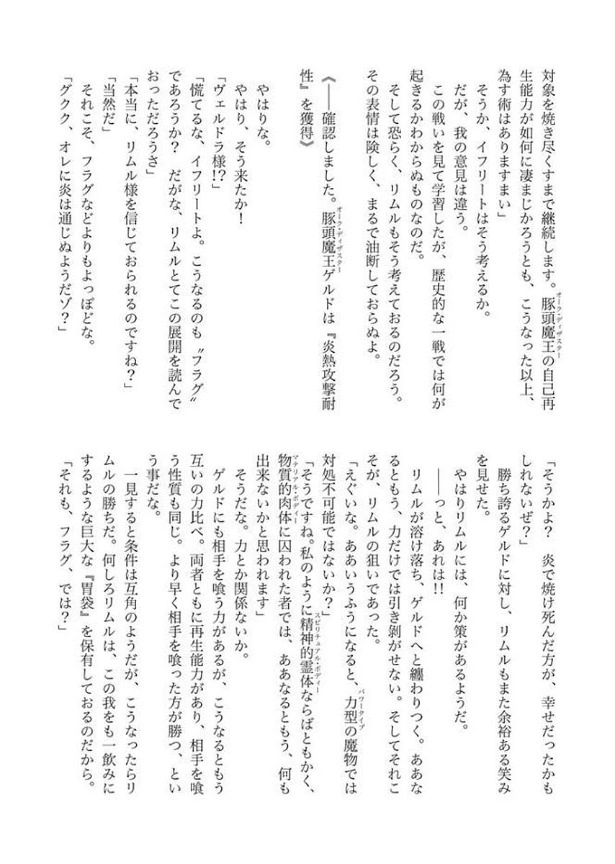 対象を焼き尽くすまで継続します。豚頭魔王の自己再
オーク・ディザスター
生能力が如何に凄まじかろうとも、こうなった以上、
為す術はありますまい」
そうか、イフリートはそう考えるか。
だが、我の意見は違う。
この戦いを見て学習したが、歴史的な一戦では何が
起きるかわからぬものなのだ。
そして恐らく、リムルもそう考えておるのだろう。
その表情は険しく、まるで油断しておらぬよ。
《――確認しました。豚頭魔王ゲルドは『炎熱攻撃耐
オーク・ディザスター
性』を獲得》
やはりな。
やはり、そう来たか!
「ヴェルドラ様!?」
「慌てるな、イフリートよ。こうなるのも〝フラグ〟
であろうか? だがな、リムルとてこの展開を読んで
おっただろうさ」
「本当に、リムル様を信じておられるのですね?」
「当然だ」
それこそ、フラグなどよりもよっぽどな。
「グクク、オレに炎は通じぬようだゾ?」
「そうかよ? 炎で焼け死んだ方が、幸せだったかも
しれないぜ?」
勝ち誇るゲルドに対し、リムルもまた余裕ある笑み
を見せた。
やはりリムルには、何か策があるようだ。
――っと、あれは!!
リムルが溶け落ち、ゲルドへと纏わりつく。ああな
るともう、力だけでは引き剝がせない。そしてそれこ
そが、リムルの狙いであった。
「えぐいな。ああいうふうになると、力型の魔物では
パワータイプ
対処不可能ではないか?」
「そうですね。私のように精神的霊体ならばともかく、
スピリチュアル・ボディー
物質的肉体に囚われた者では、ああなるともう、何も
マテリアル・ボディー
出来ないかと思われます」
そうだな。力とか関係ないか。
ゲルドにも相手を喰う力があるが、こうなるともう
互いの力比べ。両者ともに再生能力があり、相手を喰
う性質も同じ。より早く相手を喰った方が勝つ、とい
う事だな。
一見すると条件は互角のようだが、こうなったらリ
ムルの勝ちだ。何しろリムルは、この我をも一飲みに
するような巨大な『胃袋』を保有しておるのだから。
「それも、フラグ、では?」